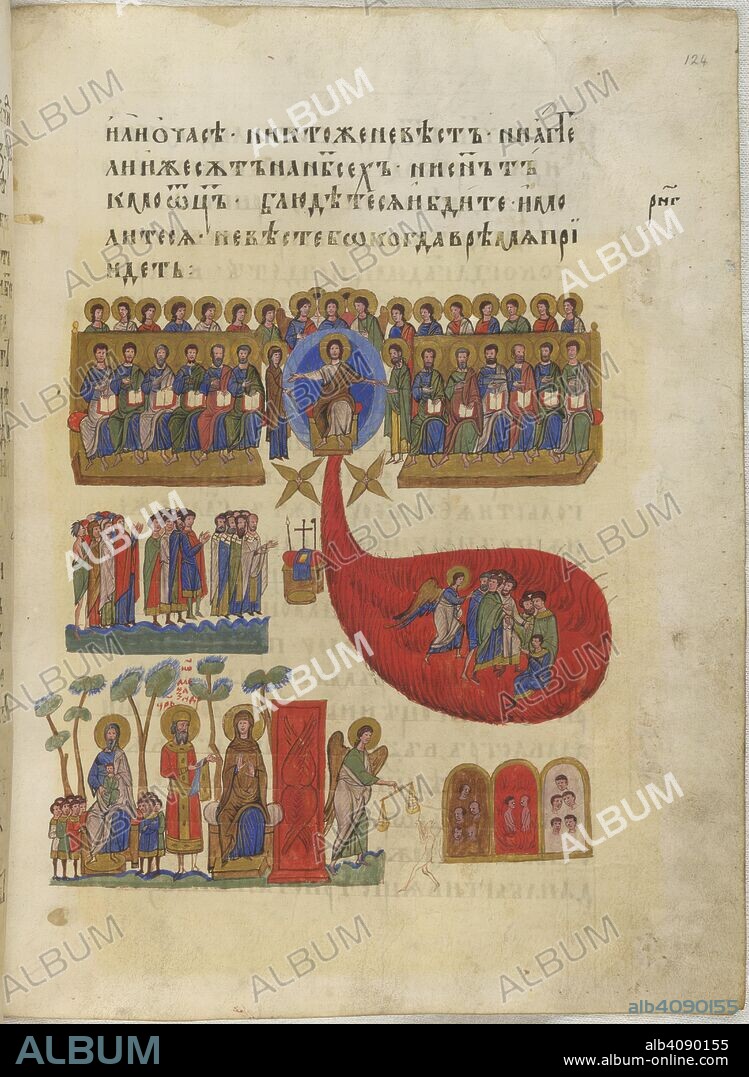 124
илиочасѣ · никтоженевѣстъ · ниаг҃ге
лиижесѫтънанб҃сехъ · нисн҃ътъ
кмоѿц҃ъ · блюдѣтесѧибдите · имо
литесѧ · невѣстебѡкогдаврѣмѧпрї
идетъ:
ALBUM
alb4090155
ALBUM
alb4090155
www.album-online.com